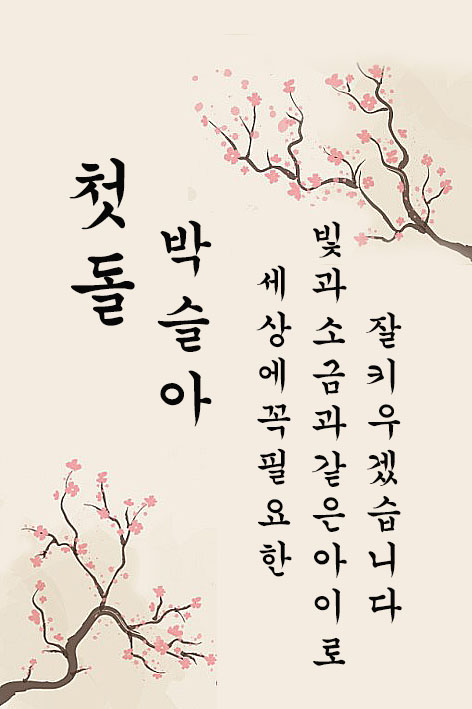 첫돌
박슬아
세상에꼭필요한
빛과소금과같은아이로
잘키우겠습니다